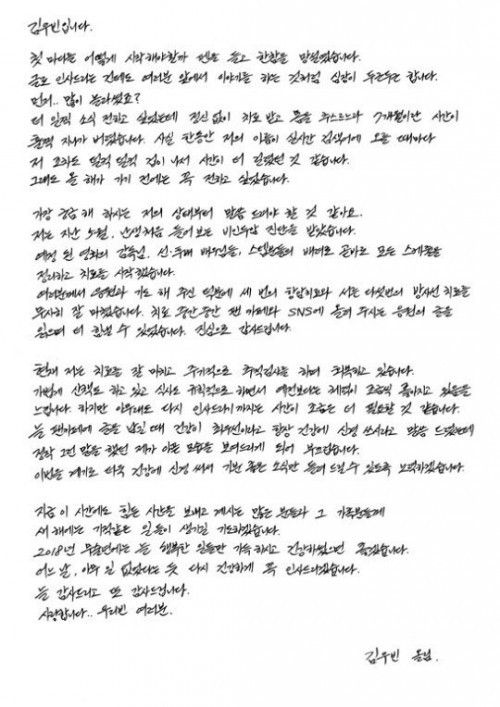 김우빈입니다.
첫 마디는 어떻게 시작해야할까 펜을 들고 한참을 망설였습니다.
글로 인사드리는 건데도 여러분 앞에서 이야기를 하는 것처럼 심장이 두근두근 합니다.
먼저.. 많이 놀라셨죠?
더 일찍 소식 전하고 싶었는데 정신 없이 치료 받고 몸을 추스르느라 7개월이란 시간이
훌쩍 지나가 버렸습니다. 사실 한동안 저의 이름이 실시간 검색어에 오를 때마다
저 조차도 덜컥 덜컥 겁이 나서 시간이 더 길어졌던 것 같습니다.
그래도 올 해가 가기 전에는 꼭 전하고 싶었습니다.
가장 궁금해 하시는 저의 상태부터 말씀 드려야 할 것 같아요.
저는 지난 5월, 난생처음 들어보는 비인두암 진단을 받았습니다.
예정 된 영화의 감독님, 선·후배 배우님들, 스탭분들의 배려로 곧바로 모든 스케줄을
정리하고 치료를 시작했습니다.
여러분께서 응원과 기도 해 주신 덕분에 세 번의 항암치료와 서른 다섯번의 방사선 치료를
무사히 잘 마쳤습니다. 치료 중간중간 팬 카페와 SNS에 올려 주시는 응원의 글을
읽으며 더 힘낼 수 있었습니다. 진심으로 감사드립니다.
현재 저는 치료를 잘 마치고 주기적으로 추적검사를 하며 회복하고 있습니다.
가볍게 산책도 하고 있고 식사도 규칙적으로 하면서 예전보다는 체력이 조금씩 좋아지고 있음을
느낍니다. 하지만 아무래도 다시 인사드리기까지는 시간이 조금은 더 필요할 것 같습니다.
늘 팬카페에 글을 남길 때 건강이 최우선이라고 항상 건강에 신경 쓰시라고 말씀 드렸는데
정작 그런 말을 했던 제가 아픈 모습을 보여드리게 되어 부끄럽습니다.
이번을 계기로 더욱 건강에 신경 써서 기쁘고 좋은 소식만 들려 드릴 수 있도록 노력하겠습니다.
지금 이 시간에도 힘든 시간을 보내고 계시는 많은 분들과 그 가족분들께
새 해에는 기적같은 일들이 생기길 기도하겠습니다.
2018년 무술년에는 늘 행복한 일들만 가득 하시고 건강하셨으면 좋겠습니다.
어느 날, 아무 일 없었다는 듯 다시 건강하게 꼭 인사드리겠습니다.
늘 감사드리고 또 감사드립니다.
사랑합니다.. 우리빈 여러분.
김우빈 올림.